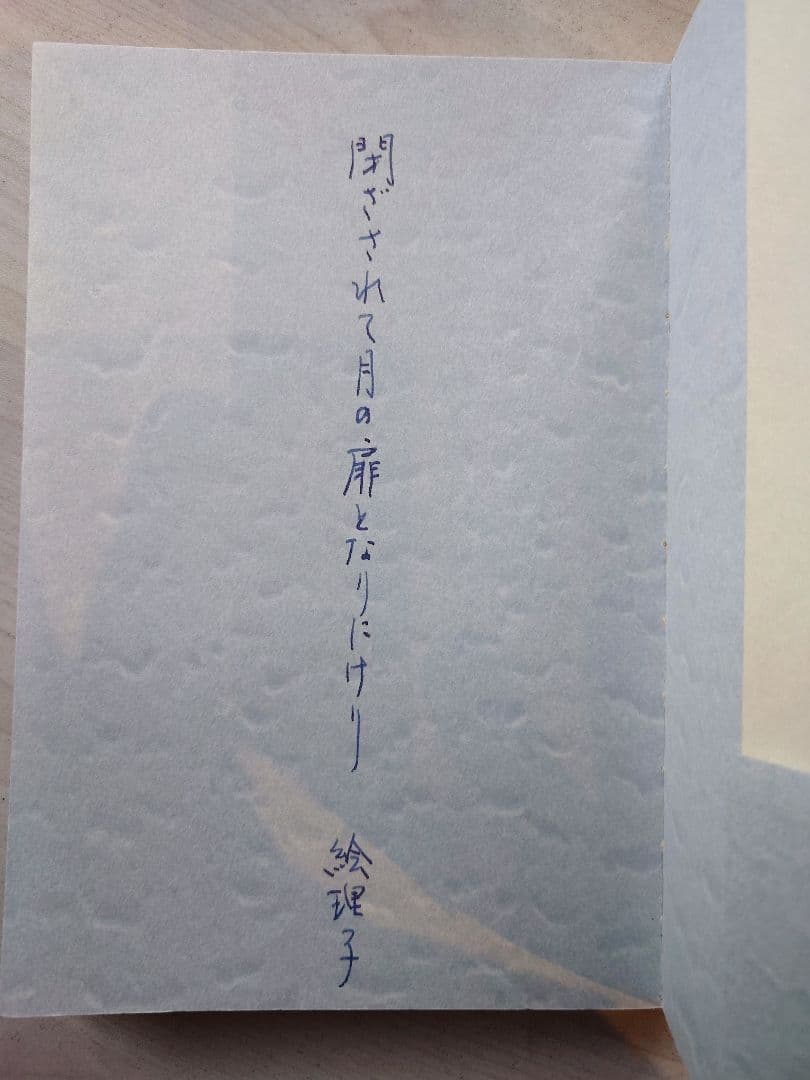 閉ざされて月の扉となりにけり 絵理子